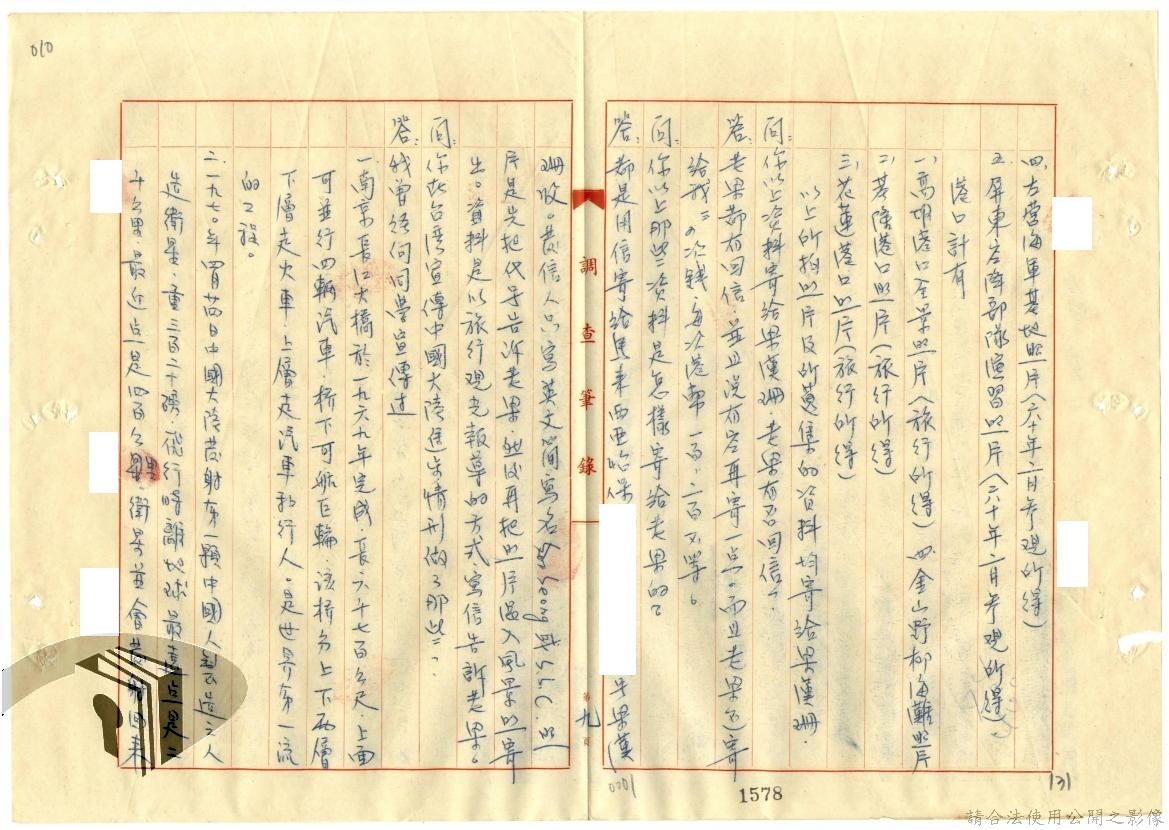 010
四、左營海軍基地照片(六十年二月參觀所得)
五、屏東空降部隊演習照片(六十年二月參觀所得)、
港口計有
一、高雄港口全景照片(旅行所得) 四、金山野柳海灘照片
二、基隆港口照片(旅行所得)
三、花蓮港口照片(旅行所得)
以上所拍照片及所蒐集的資料均寄給梁漢珊.
問:你以上資料寄給梁漢珊.老梁有否回信?
答:老梁都有回信.並且說有空再寄一点。而且老梁也寄
給我三、四次錢.每次港幣一百、二百不等。
問:你以上那些資料是怎樣寄給老梁的?
答:都是用信寄給馬來西亞怡保 梁漢
調查筆錄
第九頁
珊收。發信人只寫英文簡寫名 Leong 或 L.Y.C. 照
片是先把代号告訴老梁.然後再把照片混入風景照寄
出。資料是以旅行觀光報導的方式.寫信告訴老梁。
問:你在台灣宣傳中國大陸進步情形做了那些?
答:我曾經向同學宣傳过
一南京長江大橋於一九六九年完成.長六千七百公尺.上面
可並行四輛汽車.桥下可航巨輪.該桥分上下兩層
下層走火車.上層走汽車和行人。是世界第一流
的工程。
二.一九七〇年四月廿四日中國大陸發射第一顆中國人製造之人
造衛星.重三百二十磅.飛行時離地球最遠点是二
千公里.最近点是四百公里.衛星並會發射回來
0001
1578
131
請合法使用公開之影像